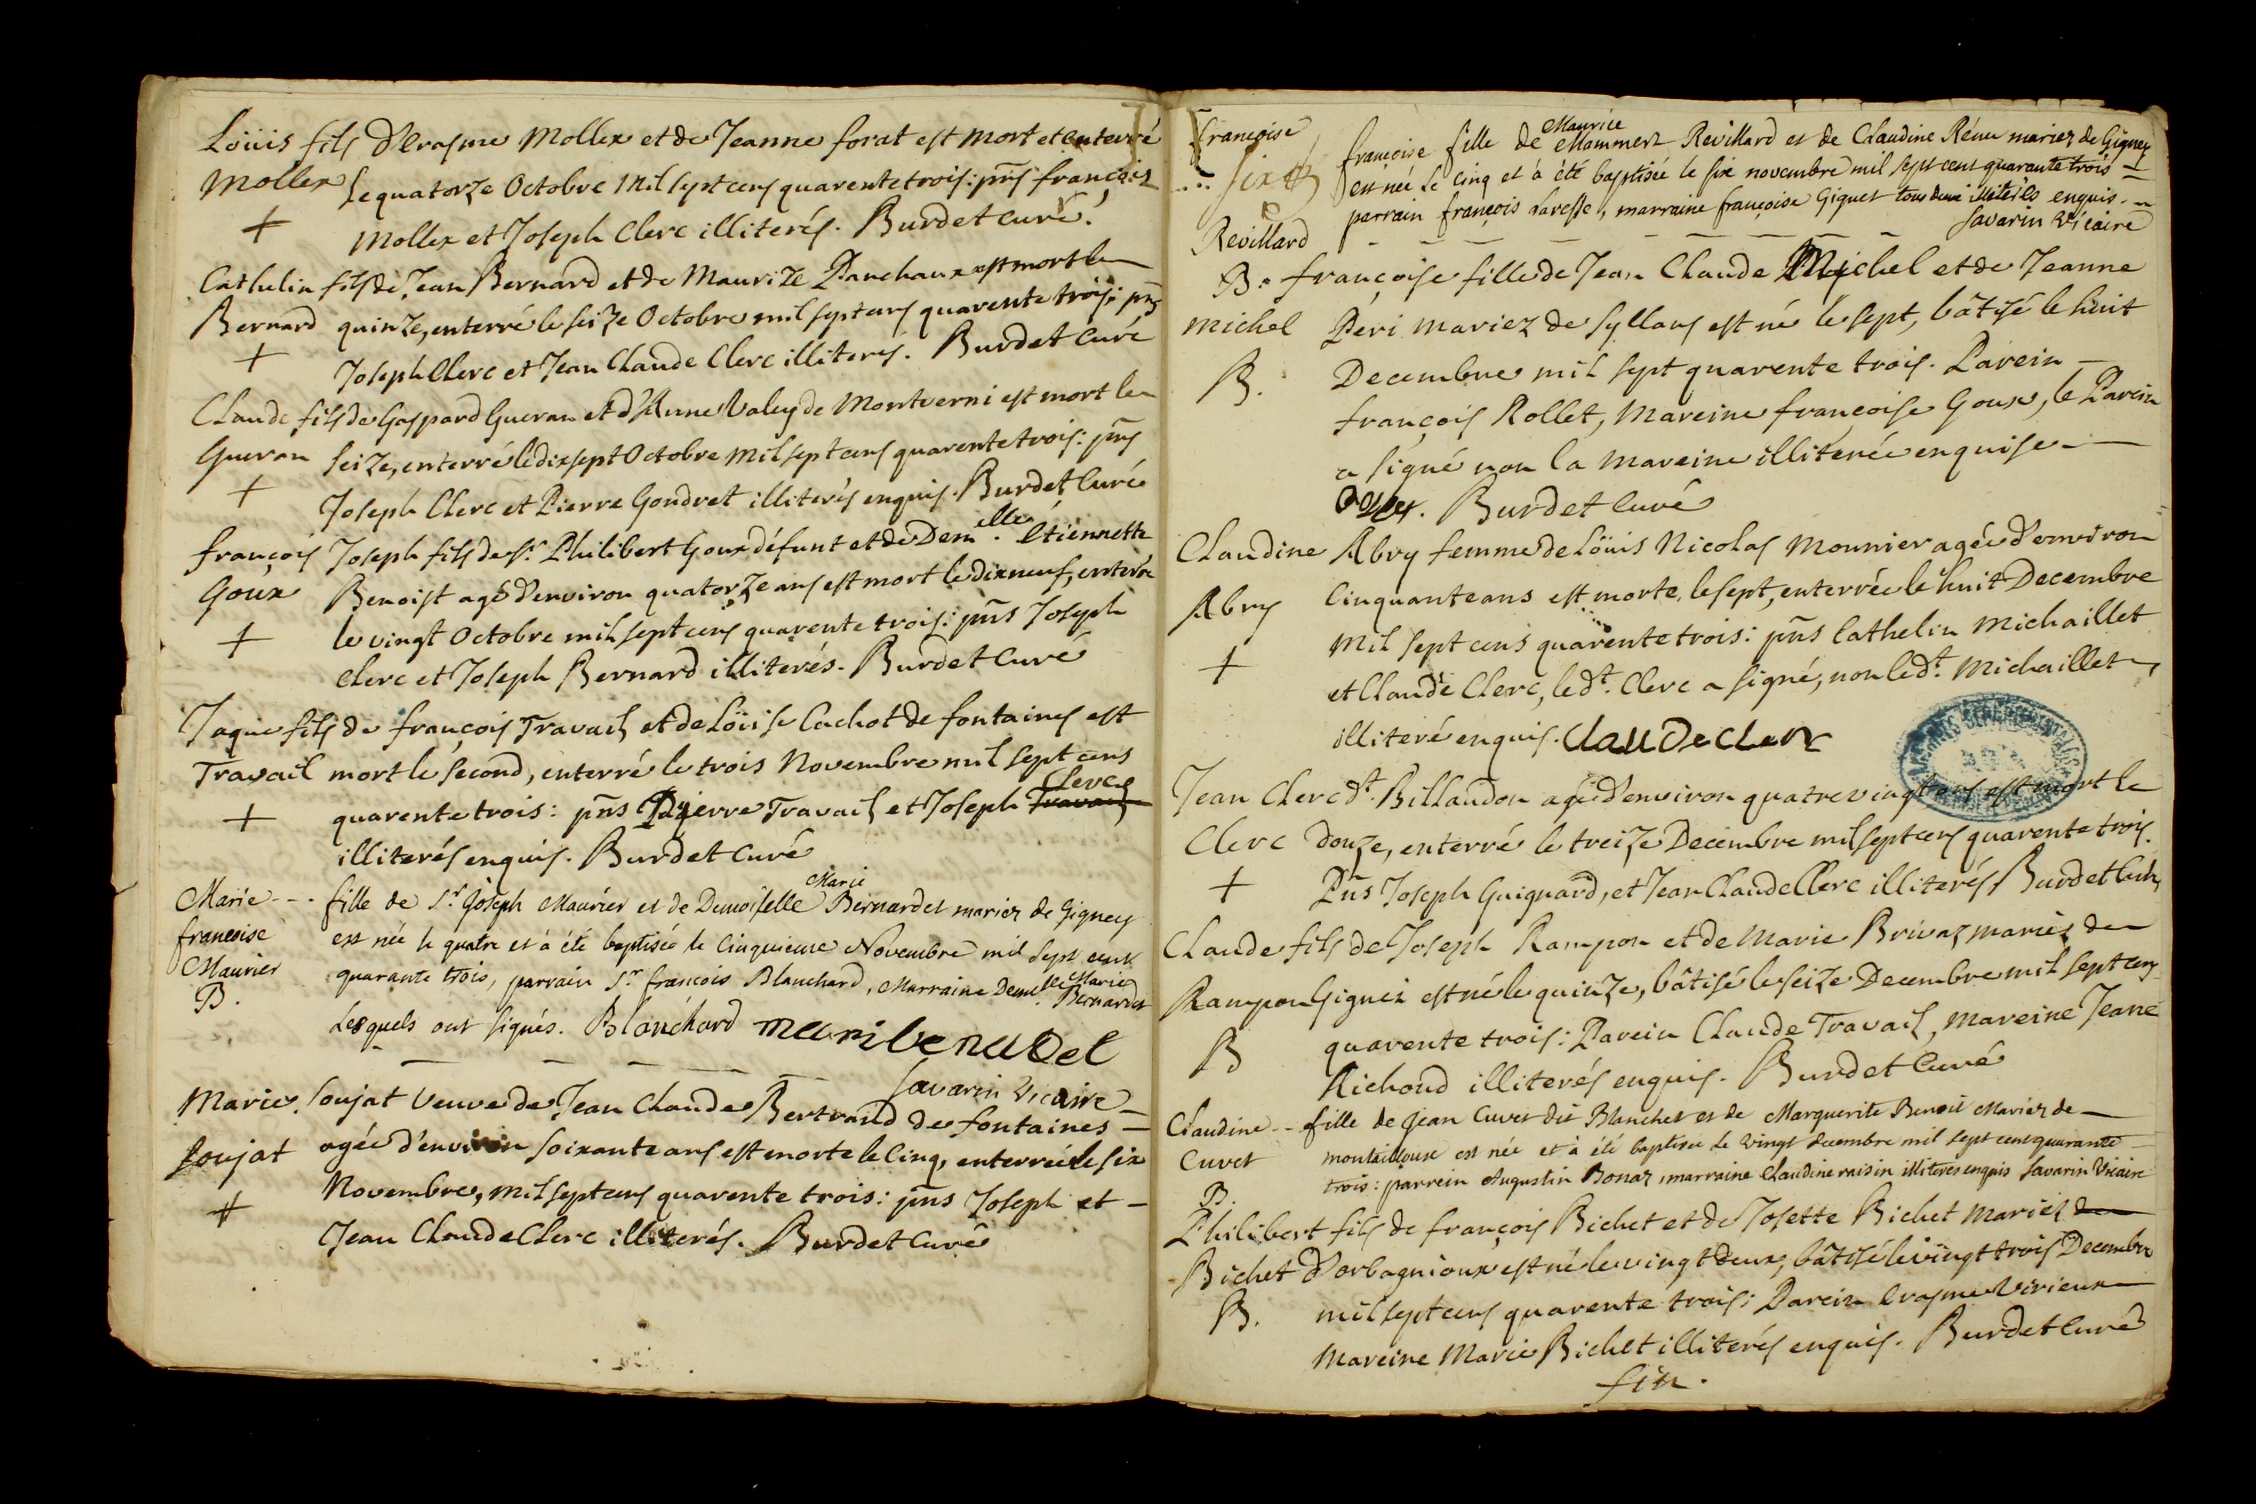 Loüis fils d'Erasme Mollex et de Jeanne forat est mort et enterré
Mollex le quatorze Octobre mil sept cens quarente trois: pns françois
+ Mollex et Joseph Clerc illiterés. Burdet Curé.
Cathelin fils de Jean Bernard et de Maurize Panchaux est mort le
Bernard quinze, enterré le seize Octobre mil sept cens quarente trois: pns
+ Joseph Clerc et Jean Claude Clerc illiterés. Burdet Curé
Claude fils de Gaspard Gueran et d'Anne Valey de Montverni est mort le
Gueran seize, enterré le dix sept Octobre mil sept cens quarente trois: pns
+ Joseph Clerc et Pierre Gondret illiterés enquis. Burdet Curé
françois Joseph fils de Sr. Philibert Goux défunt et de Dem.elle Etiennette
Goux Benoist agé d'environ quatorze ans est mort le dixneuf, enterré
+ le vingt Octobre mil sept cens quarente trois: pns Joseph
Clerc et Joseph Bernard illiterés. Burdet Curé
Jaque fils de françois Travail et de Loüise Cachot de fontaines est
Travail mort le second, enterré le trois Novembre mil sept cens
Clerc
+ quarente trois: pns Pierre Travail et Joseph Travail
illiterés enquis. Burdet Curé
Marie
Marie - - . fille de Sr. Joseph Maurier et de Demoiselle Bernardet mariez de Gigney
francoise est née le quatre et à été baptisée le cinquieme Novembre mil sept cent
Maurier quarante trois, parrain Sr. francois Blanchard, Marraine Demelle. Marie Bernardet
B. Lesquels ont signés. Blanchard mari benadel
Savarin Vicaire
Marie Soujat Veuve de Jean Claude Bertrand de fontaines
Soujat agée d'environ soixante ans est morte le Cinq, enterrée le six
+ Novembre, mil sept cens quarente trois: pns Joseph et
Jean Claude Clerc illiterés. Burdet Curé
francoise
Maurice
francoise fille de Mammert Revillard et de Claudine Rénu mariez de Gigney
six est née le cinq et à été baptisée le six novembre mil sept cent quarante trois
parrain françois Daresse, marraine françoise Giguet tous deux illiterés enquis.
Revillard Savarin Vicaire
B. françoise fille de Jean Claude Michel et de Jeanne
michel Peri mariez de Syllans est né le sept, bâtisé le huit
B. Decembre mil sept quarente trois. Parein
françois Rollet, Mareine françoise Goux, le Parein
a signé non la Mareine illiterée enquise
Burdet Curé
Claudine Abry femme de Loüis Nicolas Monnier agée d'environ
Abry Cinquante ans est morte le sept, enterrée le huit Decembre
mil sept cens quarente trois: pns Cathelin Michaillet
+ et Claude Clerc, le dt. Clerc a signé, non le dt. Michaillet
illiteré enquis. Claude clerc
Jean Clerc dt. Billaudon agé d'environ quatre vingt ans est mort le
Clerc douze, enterré le treize Decembre mil sept cens quarente trois.
+ Pns Joseph Guignard, et Jean Claude Clerc illiterés Burdet Curé
Claude fils de Joseph Rampon et de Marie Brivaz mariez de
Rampon Gignez est né le quinze, bâtisé le seize Decembre mil sept cens
B quarente trois: Parein Claude Travail, Mareine Jeane
Richond illiterés enquis. Burdet Curé
Claudine - - fille de Jean Cuvet dit Blanchet et de Marguerite Benoit Mariez de
Cuvet montailloux est née et à été baptisée le vingt decembre mil sept cent quarante
B. trois: parrein Augustin Bonaz, marraine Claudine raisin illiterés enquis Savarin Vicaire
Philibert fils de françois Bichet et de Josette Bichet Mariez de
Bichet d'orbagnioux est né le vingt deux, bâtisé le vingt trois Decembre
B. mil sept cens quarente trois; Parein Erasme Virieux
Mareine Marie Bichet illiterés enquis. Burdet Curé
fin.